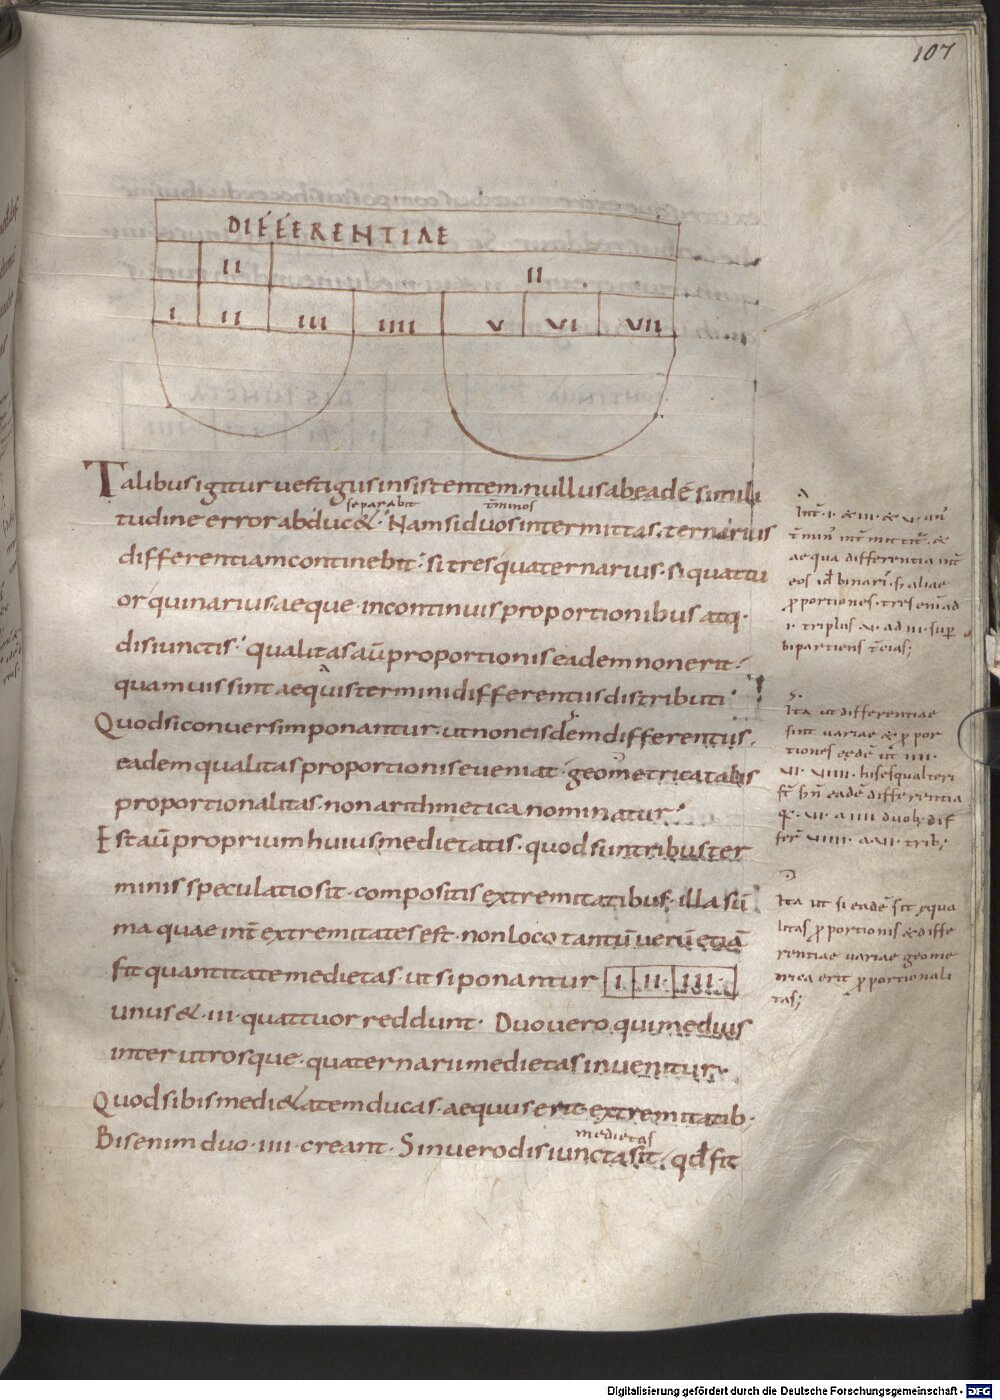 107
DIFFERENTIAE
II II
I II III IIII V VI VII
Talibus igitur uestigiis insistentem· nullus ab eadē simili
separabit t̄minos
tudine error abduc&· Nam si duos intermittas· ternarius
differentiam continebit· si tres quaternarius· si quattu
or quinarius aeque in continuis proportionibus atq·
disiunctis· qualitas aū proportionis eadem non erit·
quamuis sint aequis termini differentiis distributi·
Quod si conuersim ponantur· ut non eisdem differentiis·
eadem qualitas proportionis eueniat· geometrica talis
proportionalitas· non arithmetica nominatur·
Est aū proprium huius medietatis· quod si in tribus ter
minis speculatio sit· compositis extremitatibus· illa sū
ma quae int̄ extremitates est· non loco tantū uerū etiā
fit quantitate medietas· ut si ponantur I· II· III·
unus &· III· quattuor reddunt· Duo uero qui medius
inter utrosque· quaternarii medietas inuenitur·
Quod si bis medi&atem ducas· aequus erit extremitatib·
medietas
Bis enim duo· IIII· creant· Sin uero disiuncta sit· qđ fit
Int̄· I· & III· & V· un'
t̄min' int̄ mittit̄· &
aequa differentia int̄
eos id binari'· s; aliae
p̱portiones· tres eni ad
I· triplus V· ad III· sup
bipartiens t̄cias;
Ita ut differentiae
sint uariae & p̱por
tiones eedē ut IIII·
VI· VIIII· hi sesqualteri
st̄ s; n̄ eadē differentia
q· VI· a IIII duob; dif
fer̄ VIIII· a VI· trib;
Ita ut si eadē sit equa
litas p̱portionis & diffe
rentiae uariae geome
trica erit p̱portionali
tas;
Digitalisierung gefördert durch die Deutsche Forschungsgemeinschaft - DFG